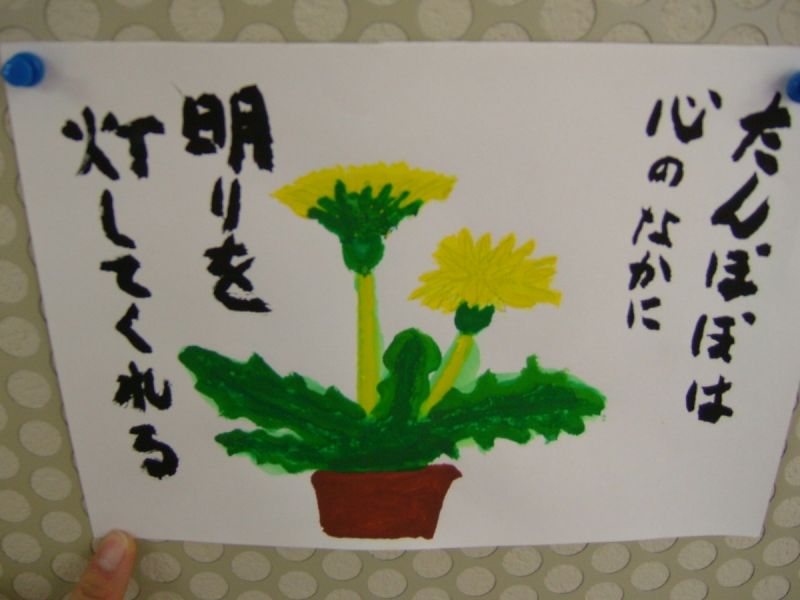 たんぽぽは
心のなかに
明りを
灯してくれる